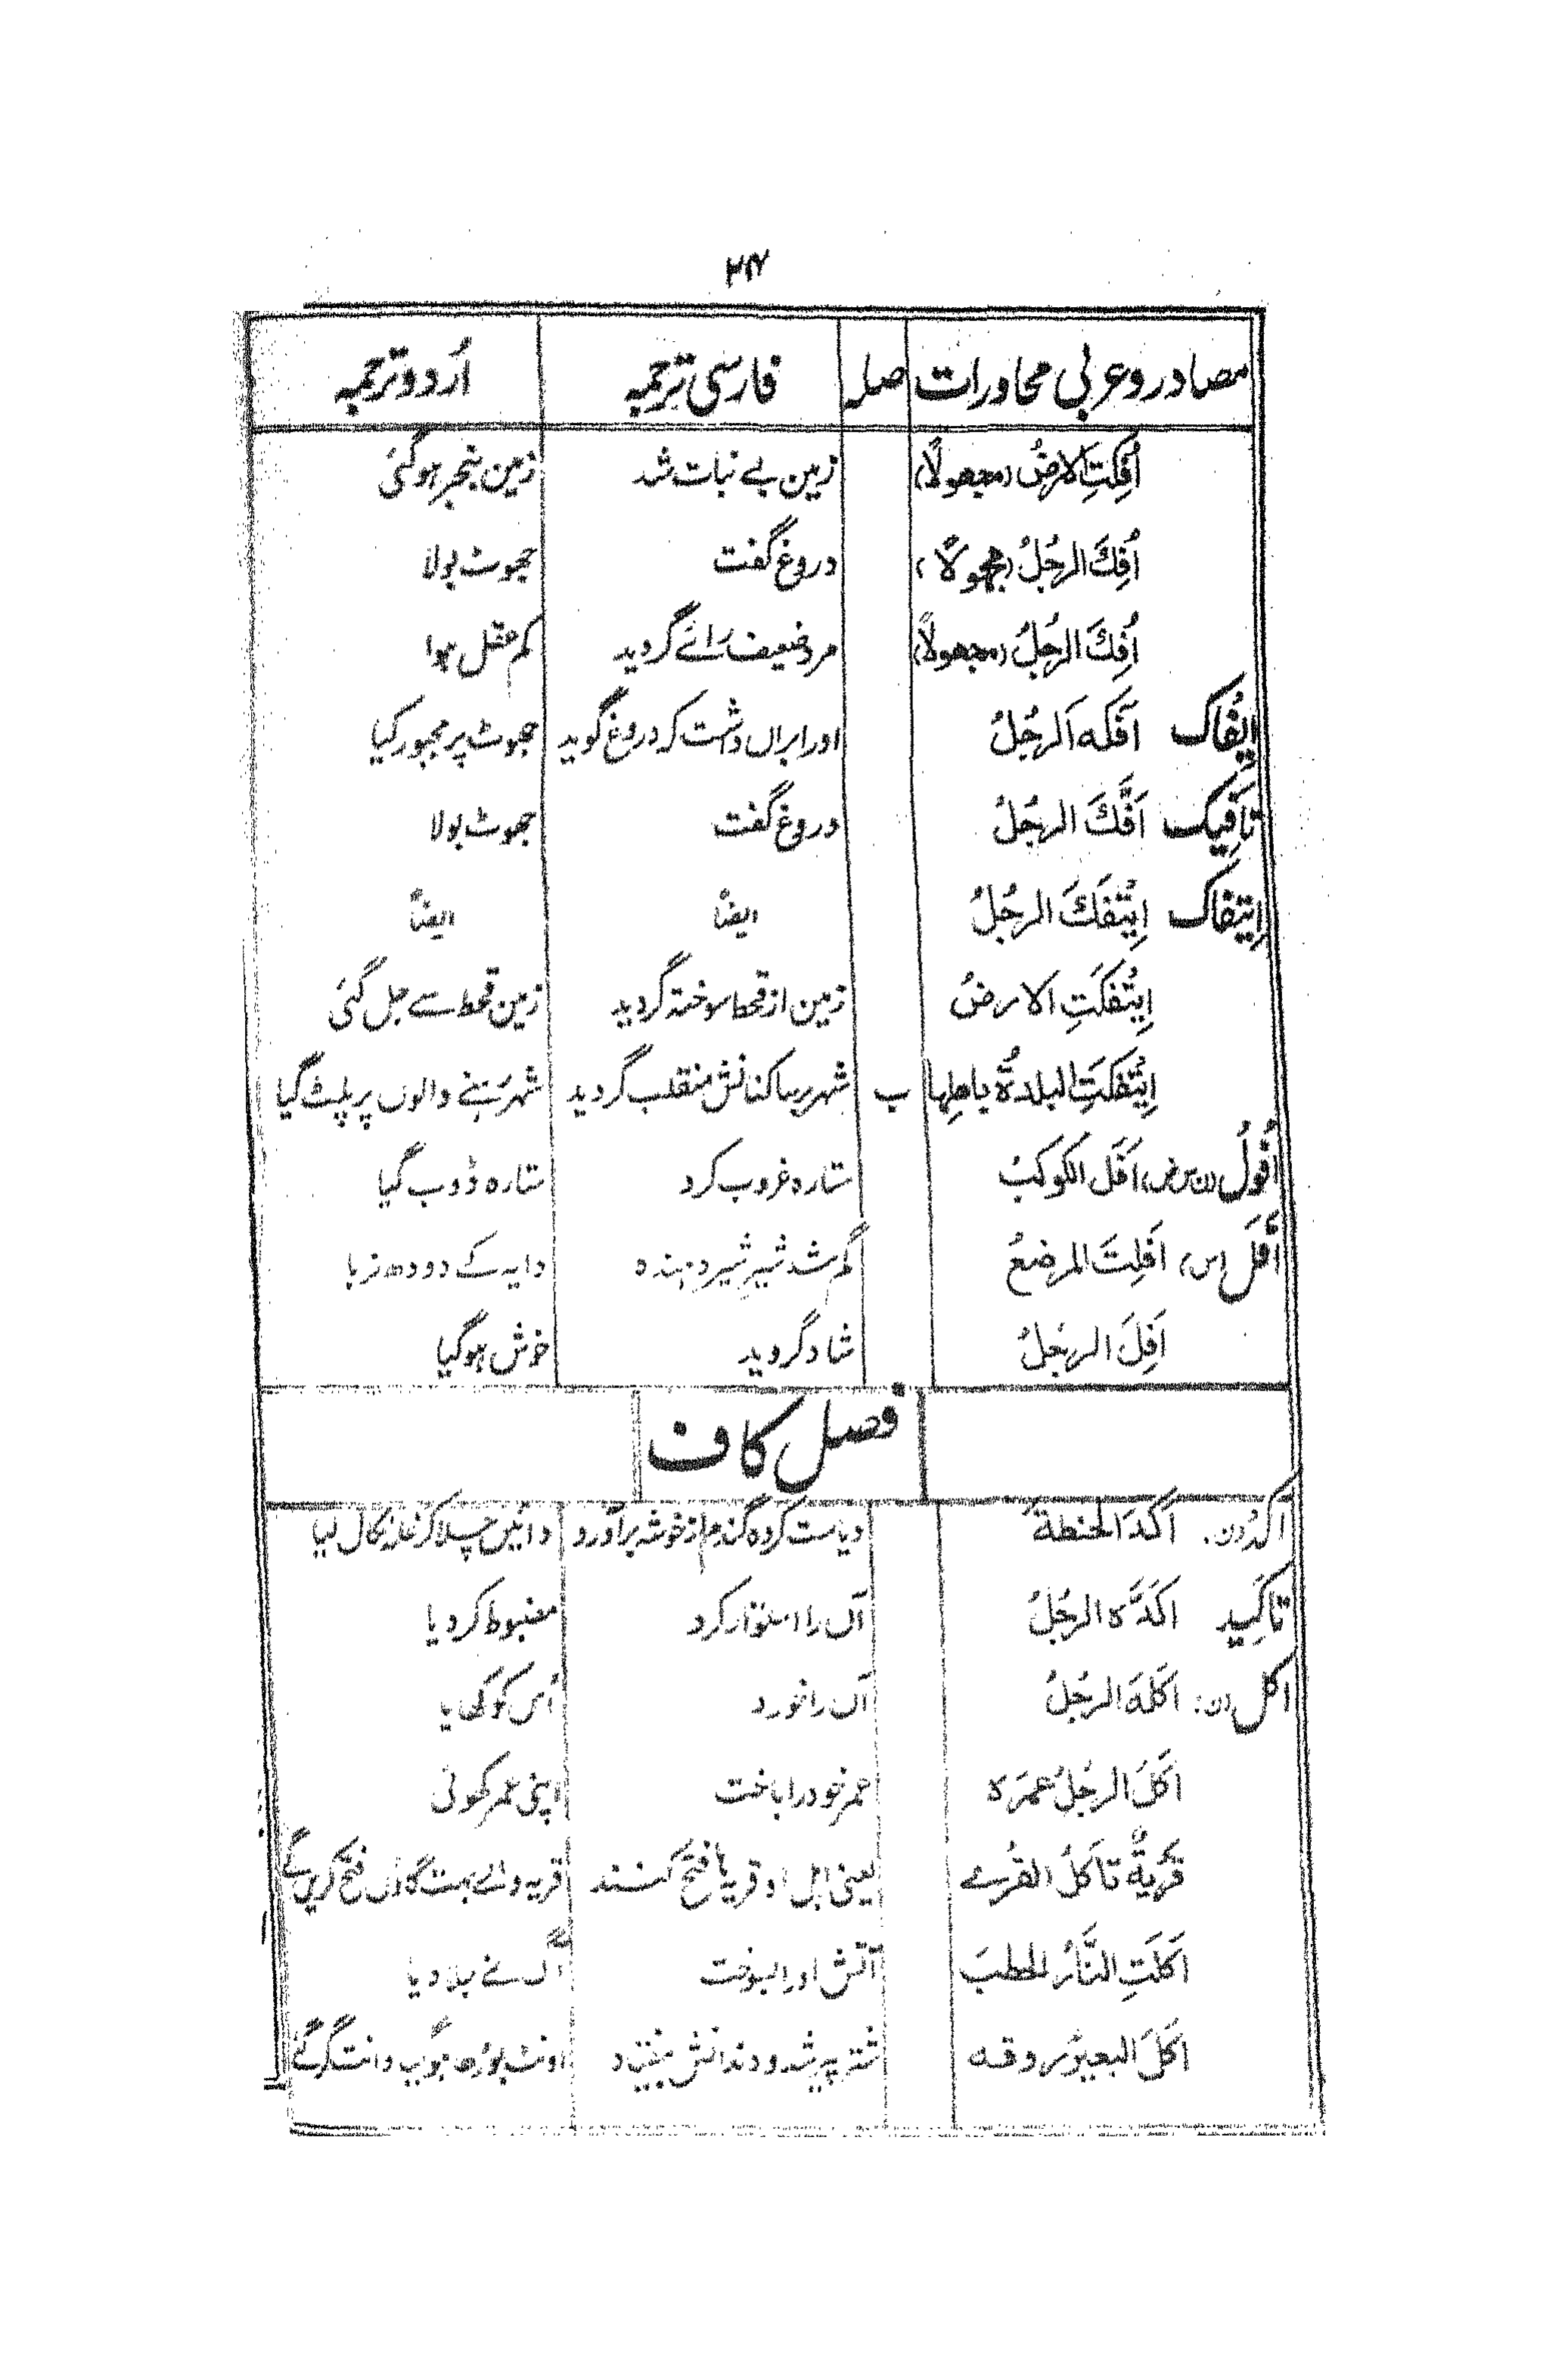 مصادر و عربی محاورات صلہ فارسی ترجمہ اُردو ترجمہ
اُفِكَتِ الارضُ (مجهولاً) زمین بے نبات شد زمین بنجر ہوگئی
اُفِكَ الرجُلُ (مجهولاً) دروغ گفت جھوٹ بولا
اُفِكَ الرجُلُ (مجهولاً) مرد ضعیف رائے گردید کم عقل ہوا
اِیْفاک آفَكَه الرجُلُ اورا براں داشت کہ دروغ گوید جھوٹ پر مجبور کیا
تافِیک اَفَّكَ الرجُلُ دروغ گفت جھوٹ بولا
اِیتِفاک اِیْتَفَكَ الرجُلُ ایضاً ایضاً
اِیْتَفَكَتِ الارضُ زمین از قحط سوختہ گردید زمین قحط سے جل گئی
اِیْتَفَكَتِ البلدةُ باهلِها ب شہر بر ساکنانش منقلب گردید شہر رہنے والوں پر پلٹ گیا
اُفُولُ (ن س ض) اَفَلَ الكوكبُ ستارہ غروب کرد ستارہ ڈوب گیا
اَفَل (س) اَفِلَتَ المرضعُ گم شد شیر شیر دہندہ دایہ کے دودھ نہ رہا
اَفِلَ الرجُلُ شاد گردید خوش ہوگیا
فصل کاف
اَکْدُ (ن) اَكَدَ الحنطةَ دیاست کردہ گندم از خوشہ برآورد دائیں چلا کر غلہ نکال لیا
تاکِید اَكَّدَہ الرجُلُ آں را استوار کرد مضبوط کردیا
اکل (ن) اَكَلَهَ الرجُلُ آں را خورد اُس کو کھایا
اَكَلَ الرجُلُ عمرَہ عمر خود را باخت اپنی عمر کھوئی
قَریةٌ تاكلُ القُرٰے یعنی اہل او قریہا فتح کنند قریہ والے بہت گاؤں فتح کریں گے
اَكَلَتِ النَّارُ الحطبَ آتش اورا بسوخت آگ نے جلا دیا
اَكَلَ البعیرُ روقه شتر پیر شد و دندانش بیفتد اونٹ بوڑھا ہوگیا دانت گرگئے